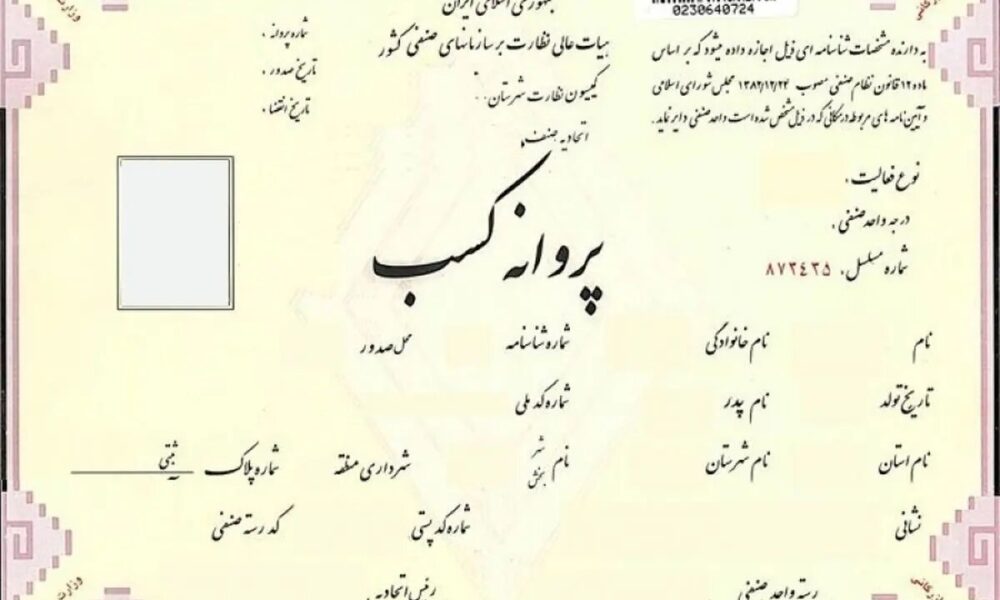 جمهوری اسلامی ایران
0230640724
هیات عالی نظارت بر سازمانهای صنفی کشور
کمیسیون نظارت شهرستان:
اتحادیه صنف:
شماره پروانه :
تاریخ صدور :
تاریخ انقضاء :
به دارنده مشخصات شناسنامه ای ذیل اجازه داده میشود که بر اساس
ماده ۱۲ قانون نظام صنفی مصوب ۱۳۸۲/۱۲/۲۴ مجلس شورای اسلامی
و آیین نامه های مربوطه در مکانی که در ذیل مشخص شده است واحد صنفی دایر نماید.
نوع فعالیت :
درجه واحد صنفی :
شماره مسلسل: ۸۷۳۴۳۵
پروانه کسب
نام نام خانوادگی شماره شناسنامه محل صدور
تاریخ تولد نام پدر شماره کد ملی
نام استان نام شهرستان نام شهر بخش شهرداری منطقه شماره پلاک ثبتی
نشانی شماره کد پستی کد رسته صنفی
رسته واحد صنفی رئیس اتحادیه